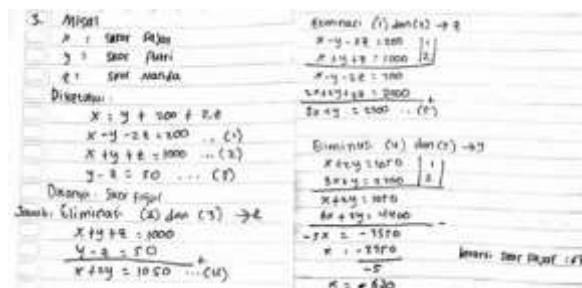 3. Misal
x : skor Fajar
y : skor Putri
z : skor Nanda
Diketahui :
x = y + 200 + 2z
x - y - 2z = 200 ... (1)
x + y + z = 1000 ... (2)
y - z = 50 ... (3)
Ditanya : Skor Fajar
Jawab : Eliminasi (2) dan (3) → z
x + y + z = 1000
y - z = 50
+
x + 2y = 1050 ... (4)
Eliminasi (1) dan (2) → z
x - y - 2z = 200 | 1 |
x + y + z = 1000 | 2 |
x - y - 2z = 200
2x + 2y + 2z = 2000
+
3x + y = 2200 ... (5)
Eliminasi (4) dan (5) → y
x + 2y = 1050 | 1 |
3x + y = 2200 | 2 |
x + 2y = 1050
6x + 2y = 4400
-
-5x = -3350
x = -3350
-5
x =
skor Fajar :